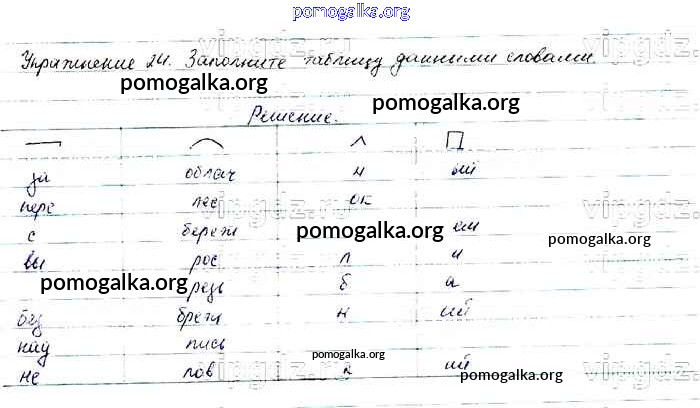 pomogalka.org
Упражнение 24. Заполните таблицу данными словами
vipgdz.ru
pomogalka.org
pomogalka.org
Решение.
за облач н ый
vipgdz.ru
пере лес ок
с береж ем
pomogalka.org
pomogalka.org
вы рос л и
pomogalka.org
резь б а
без н ий
над пись
pomogalka.org
не лов к ий
pomogalka.org